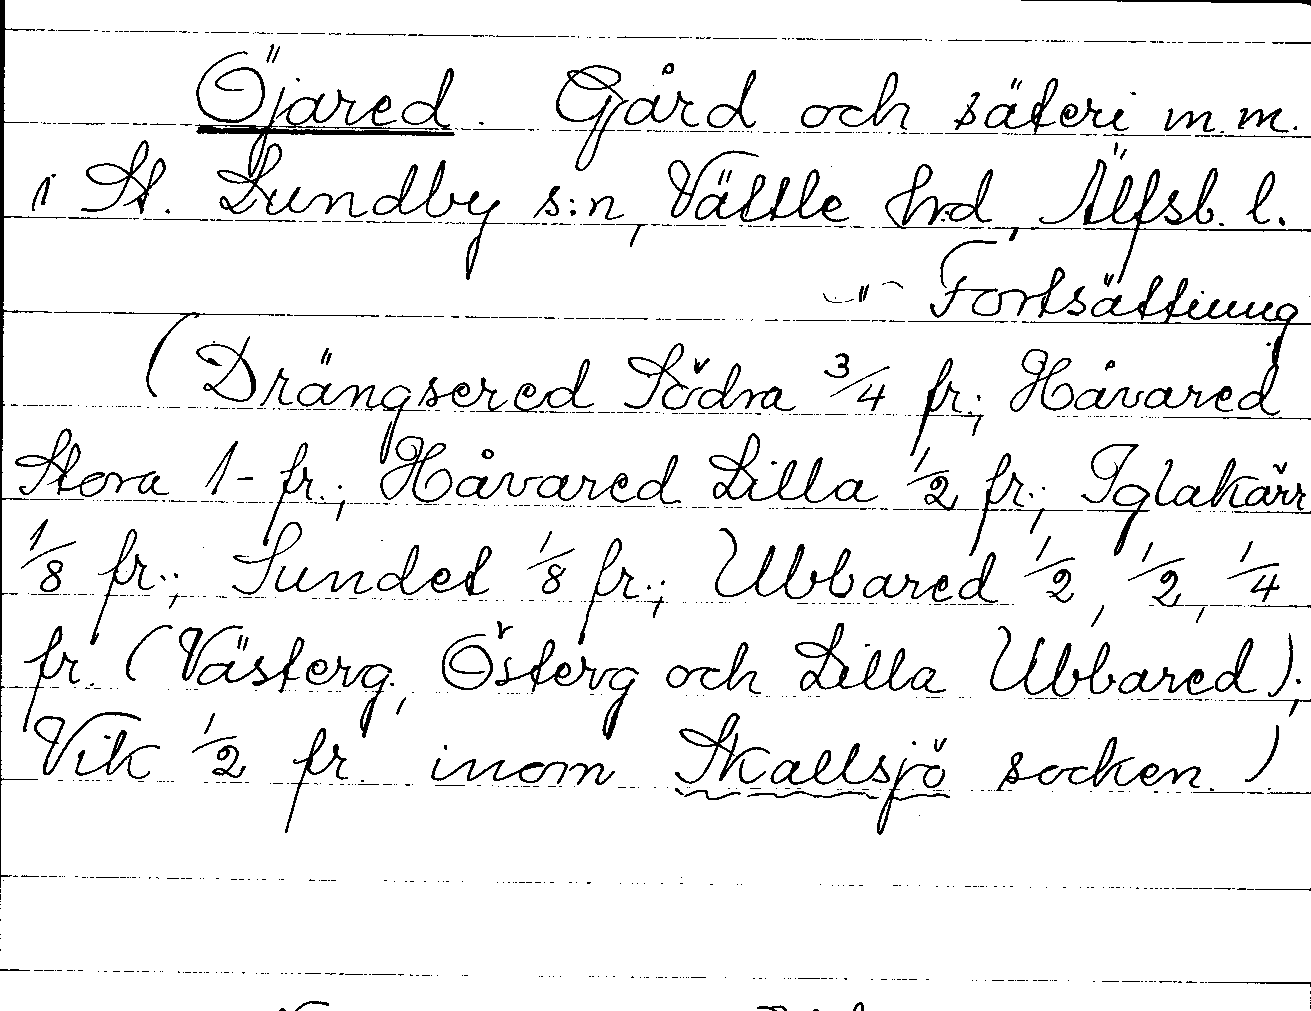 Öjared. Gård och säteri m.m.
i St. Lundby s:n, Vättle hrd, Älfsb. l.
–"– Fortsättning
(Drängsered Södra 3/4 fr.; Håvared
Stora 1- fr.; Håvared Lilla 1/2 fr.; Iglakärr
1/8 fr.; Sundet 1/8 fr.; Ubbared 1/2, 1/2, 1/4
fr. (Västerg., Österg och Lilla Ubbared);
Vik 1/2 fr. inom Skallsjö socken.)